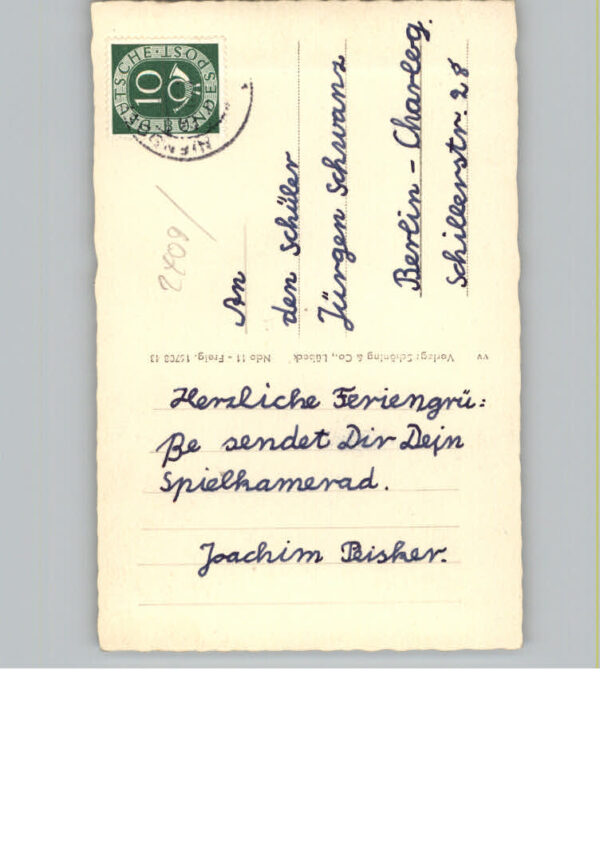 DEUTSCHE BUNDESPOST
10
2409/
An
den Schüler
Jürgen Schwanz
Berlin - Charlbg.
Schillerstr. 28
vv Verlag: Schöning & Co., Lübeck Ndo 11 - Freig. 15703 13
Herzliche Feriengrü:
ße sendet Dir Dein
Spielkamerad.
Joachim Peisker.